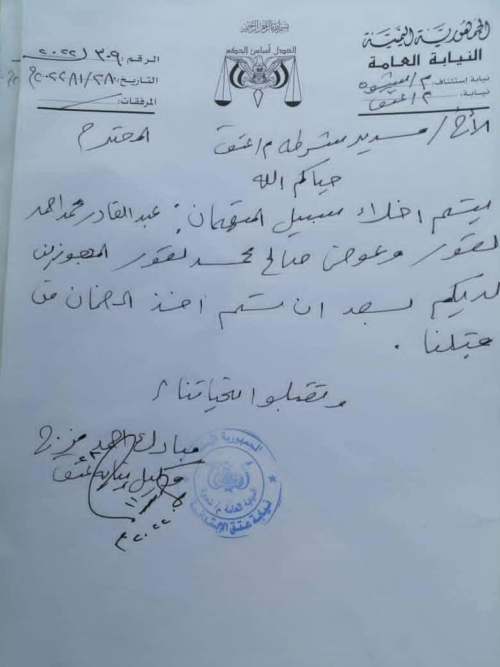 بسم الله الرحمن الرحيم
الجمهورية اليمنية
النيابة العامة
نيابة إستئناف م/شبوه
نيابة: م/عتق
العدل أساس الحكم
الرقم: ٣٠٩
التاريخ:
المرفقات:
الأخ/ مدير شرطه م/عتق المحترم
حياكم الله
يتم اخلاء سبيل المتهمان: عبدالقادر محمد احمد
لقور وعوض صالح محمد لقور المحجوزين
لديكم بعد ان تم اخذ الضمان من
قبلنا.
وتقبلوا تحياتنا،
مبارك احمد
وكيل نيابة عتق
٢٠٢٢م
الجمهورية اليمنية
النيابة العامة م/شبوة
نيابة عتق الإبتدائية